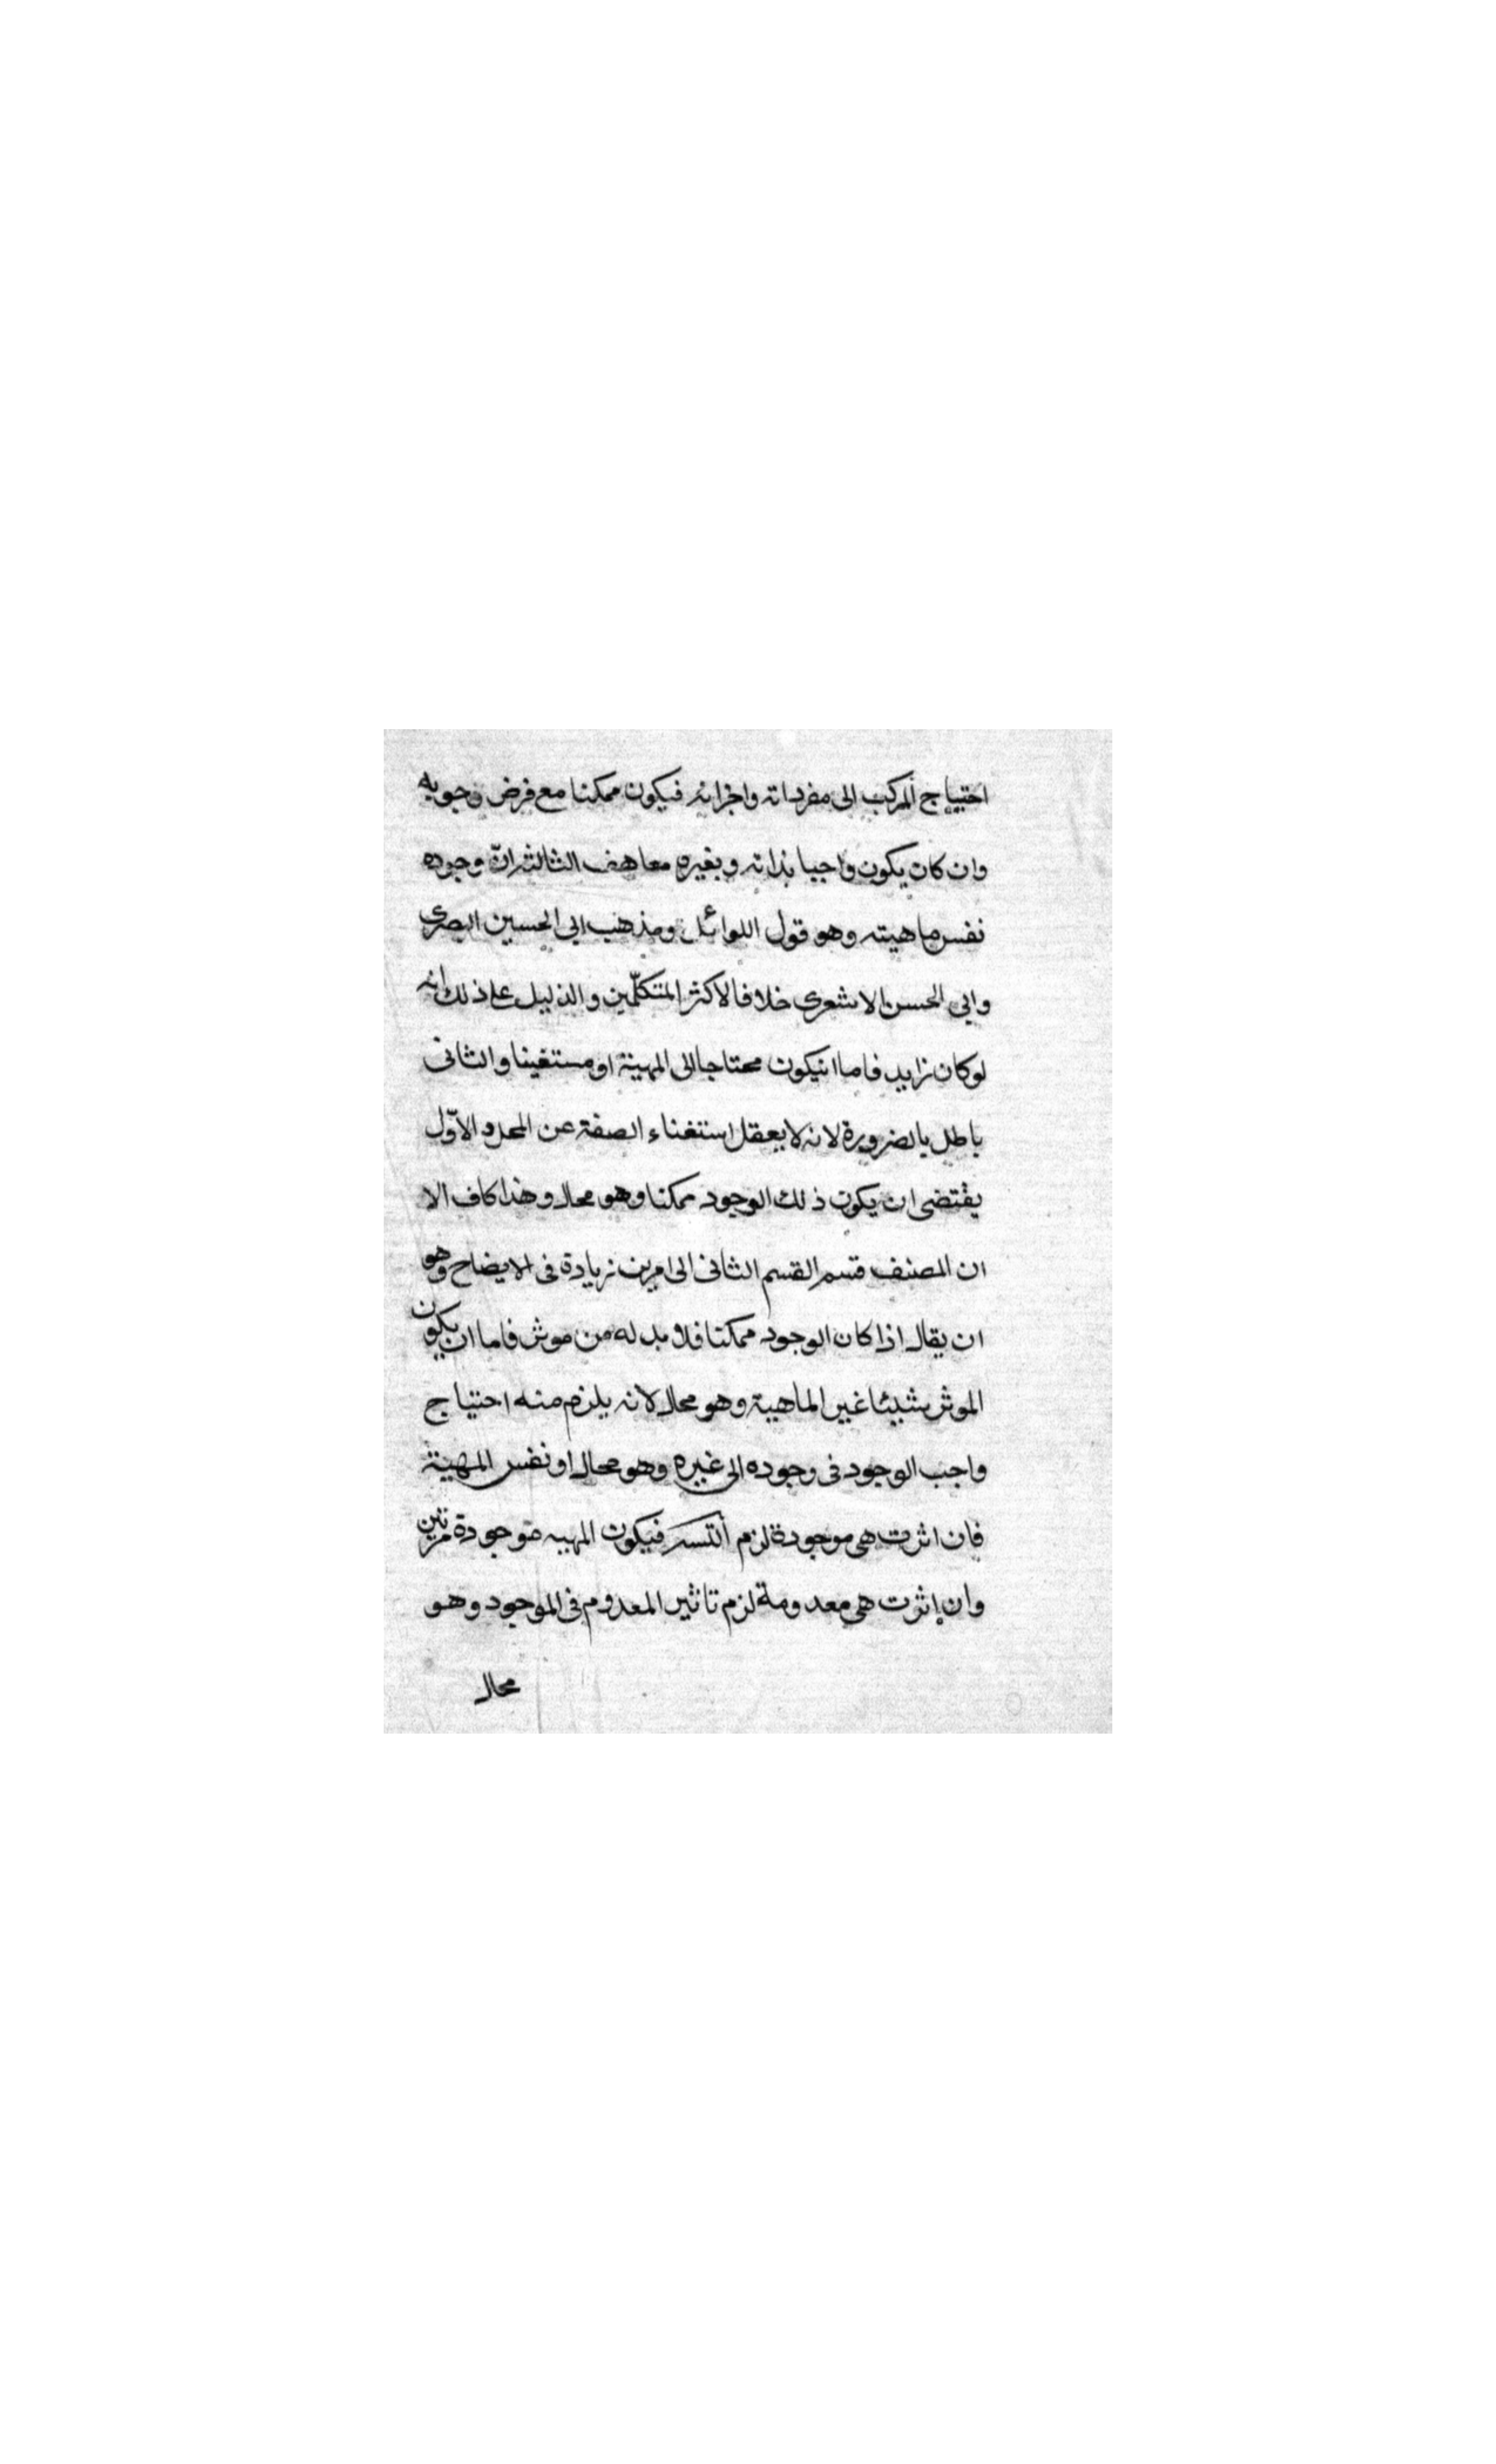 احتياج المركب الى مفرداته واجزائه فيكون ممكنا مع فرض وجوبه
وان كان يكون واجبا بذاته وبغيره معا هف الثالث ان وجوده
نفس ماهيته وهو قول اللوائل ومذهب ابى الحسين البصرى
وابى الحسن الاشعرى خلافا لاكثر المتكلّمين والدليل على ذلك انه
لو كان زايد فاما انيكون محتاجا الى المهية او مستغينا والثانى
باطل بالضرورة لانه لا يعقل استغناء الصفة عن المحل و الاوّل
يقتضى ان يكون ذلك الوجود ممكنا وهو محال وهذا كاف الا
ان المصنف قسم القسم الثانى الى امرين زيادة فى الايضاح وهو
ان يقال اذا كان الوجود ممكنا فلا بد له من موثر فاما ان يكون
الموثر شيئا غير الماهية وهو محال لانه يلزم منه احتياج
واجب الوجود فى وجوده الى غيره وهو محال او نفس المهية
فان اثرت هى موجودة لزم التسـ فيكون المهيه موجودة مرتين
وان اثرت هى معدومة لزم تاثير المعدوم فى الموجود وهو
محال